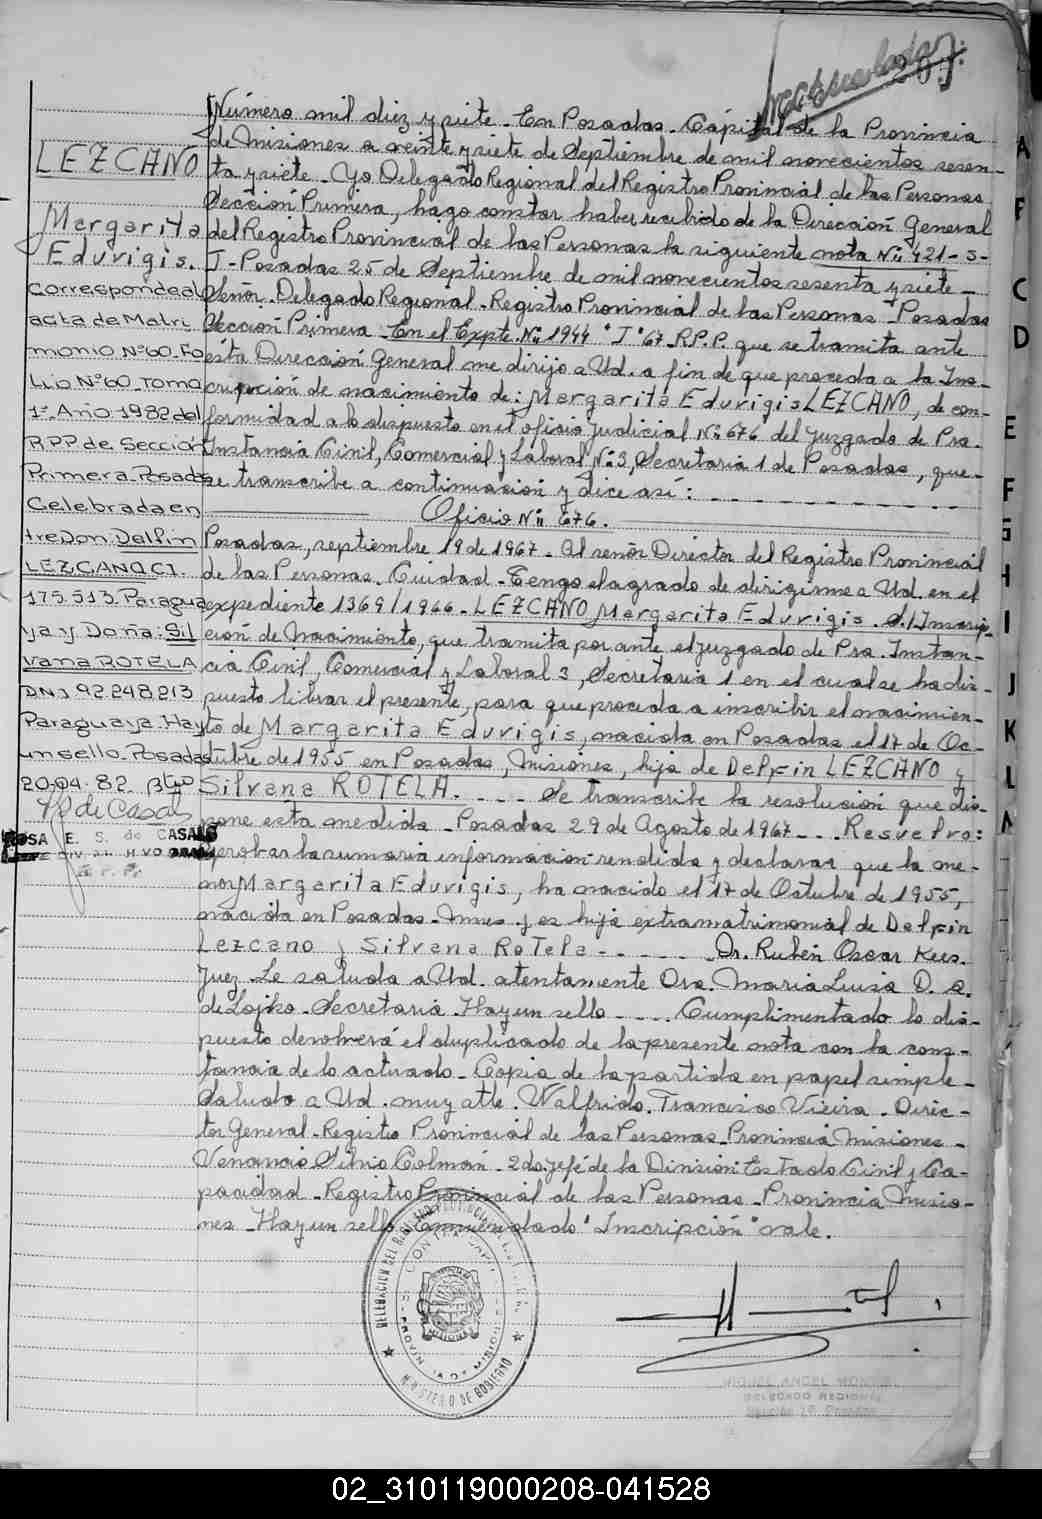 207
LEZCANO
Margarita
Eduvigis.
Corresponde al
acta de Matri
monio Nº 60. Fo
Lio Nº 60. Tomo
1º. Año 1982 del
R.P.P. de Sección
Primera. Posadas
Celebrada en
tre Don: Delfin
LEZCANO C.I.
175.513. Paragua
ya y Doña: Sil
vana ROTELA
D.N.I 92.248.213
Paraguaya. Hay
un sello. Posadas
20.04.82.
R de Casals
ROSA E. S. de CASALS
Número mil diez y siete - En Posadas - Capital de la Provincia
de Misiones a veinte y siete de Septiembre de mil novecientos sesen-
ta y siete - Yo Delegado Regional del Registro Provincial de las Personas
Sección Primera, hago constar haber recibido de la Dirección General
del Registro Provincial de las Personas la siguiente nota Nº 421-S-
I - Posadas 25 de Septiembre de mil novecientos sesenta y siete -
Señor Delegado Regional - Registro Provincial de las Personas - Posadas
Sección Primera - En el Expte. Nº 1944 "I" 67 - R.P.P. que se tramita ante
ésta Dirección General me dirijo a Ud. a fin de que proceda a la Ins-
cripción de nacimiento de: Margarita Eduvigis LEZCANO, de con-
formidad a lo dispuesto en el oficio judicial Nº 676 del Juzgado de Pra.
Instancia Civil, Comercial y Laboral Nº 3, Secretaria 1 de Posadas, que
se transcribe a continuacion y dice así: - - - - - - - - -
Oficio Nº 676.
Posadas, septiembre 19 de 1967 - Al señor Director del Registro Provincial
de las Personas - Ciudad - Tengo el agrado de dirigirme a Ud. en el
expediente 1369/1966 - LEZCANO Margarita Eduvigis. S./Inscrip-
ción de Nacimiento, que tramita por ante el juzgado de Pra. Instan-
cia Civil, Comercial y Laboral 3, Secretaria 1 en el cual se ha dis-
puesto librar el presente, para que proceda a inscribir el nacimien-
to de Margarita Eduvigis, nacida en Posadas el 17 de Oc-
tubre de 1955 en Posadas, Misiones, hija de Delfin LEZCANO y
Silvana ROTELA. - - - - Se transcribe la resolución que dis-
pone esta medida - Posadas 29 de Agosto de 1967 - - - Resuelvo:
Aprobar la sumaria información rendida y declarar que la me-
nor Margarita Eduvigis, ha nacido el 17 de Octubre de 1955,
nacida en Posadas - Mnes y es hija extramatrimonial de Delfin
Lezcano y Silvana Rotela - - - - - Dr. Rubén Oscar Kees.
Juez - Le saluda a Ud. atentamente Dra. Maria Luisa D. S.
de Lojko - Secretaria - Hay un sello - - - Cumplimentado lo dis-
puesto devolverá el duplicado de la presente nota con la cons-
tancia de lo actuado - Copia de la partida en papel simple -
Saludo a Ud. muy atte. Walfrido. Francisco Vieira - Direc-
tor General - Registro Provincial de las Personas - Provincia Misiones -
Venancio Silvio Colmán - 2do jefe de la Division Estado Civil y Ca-
pacidad - Registro Provincial de las Personas - Provincia Misio-
nes - Hay un sello - Enmendado "Inscripción" vale.
MINISTERIO DE GOBIERNO
DELEGADO REGIONAL
A
F
C
D
E
F
G
H
I
J
K
L
02_310119000208-041528